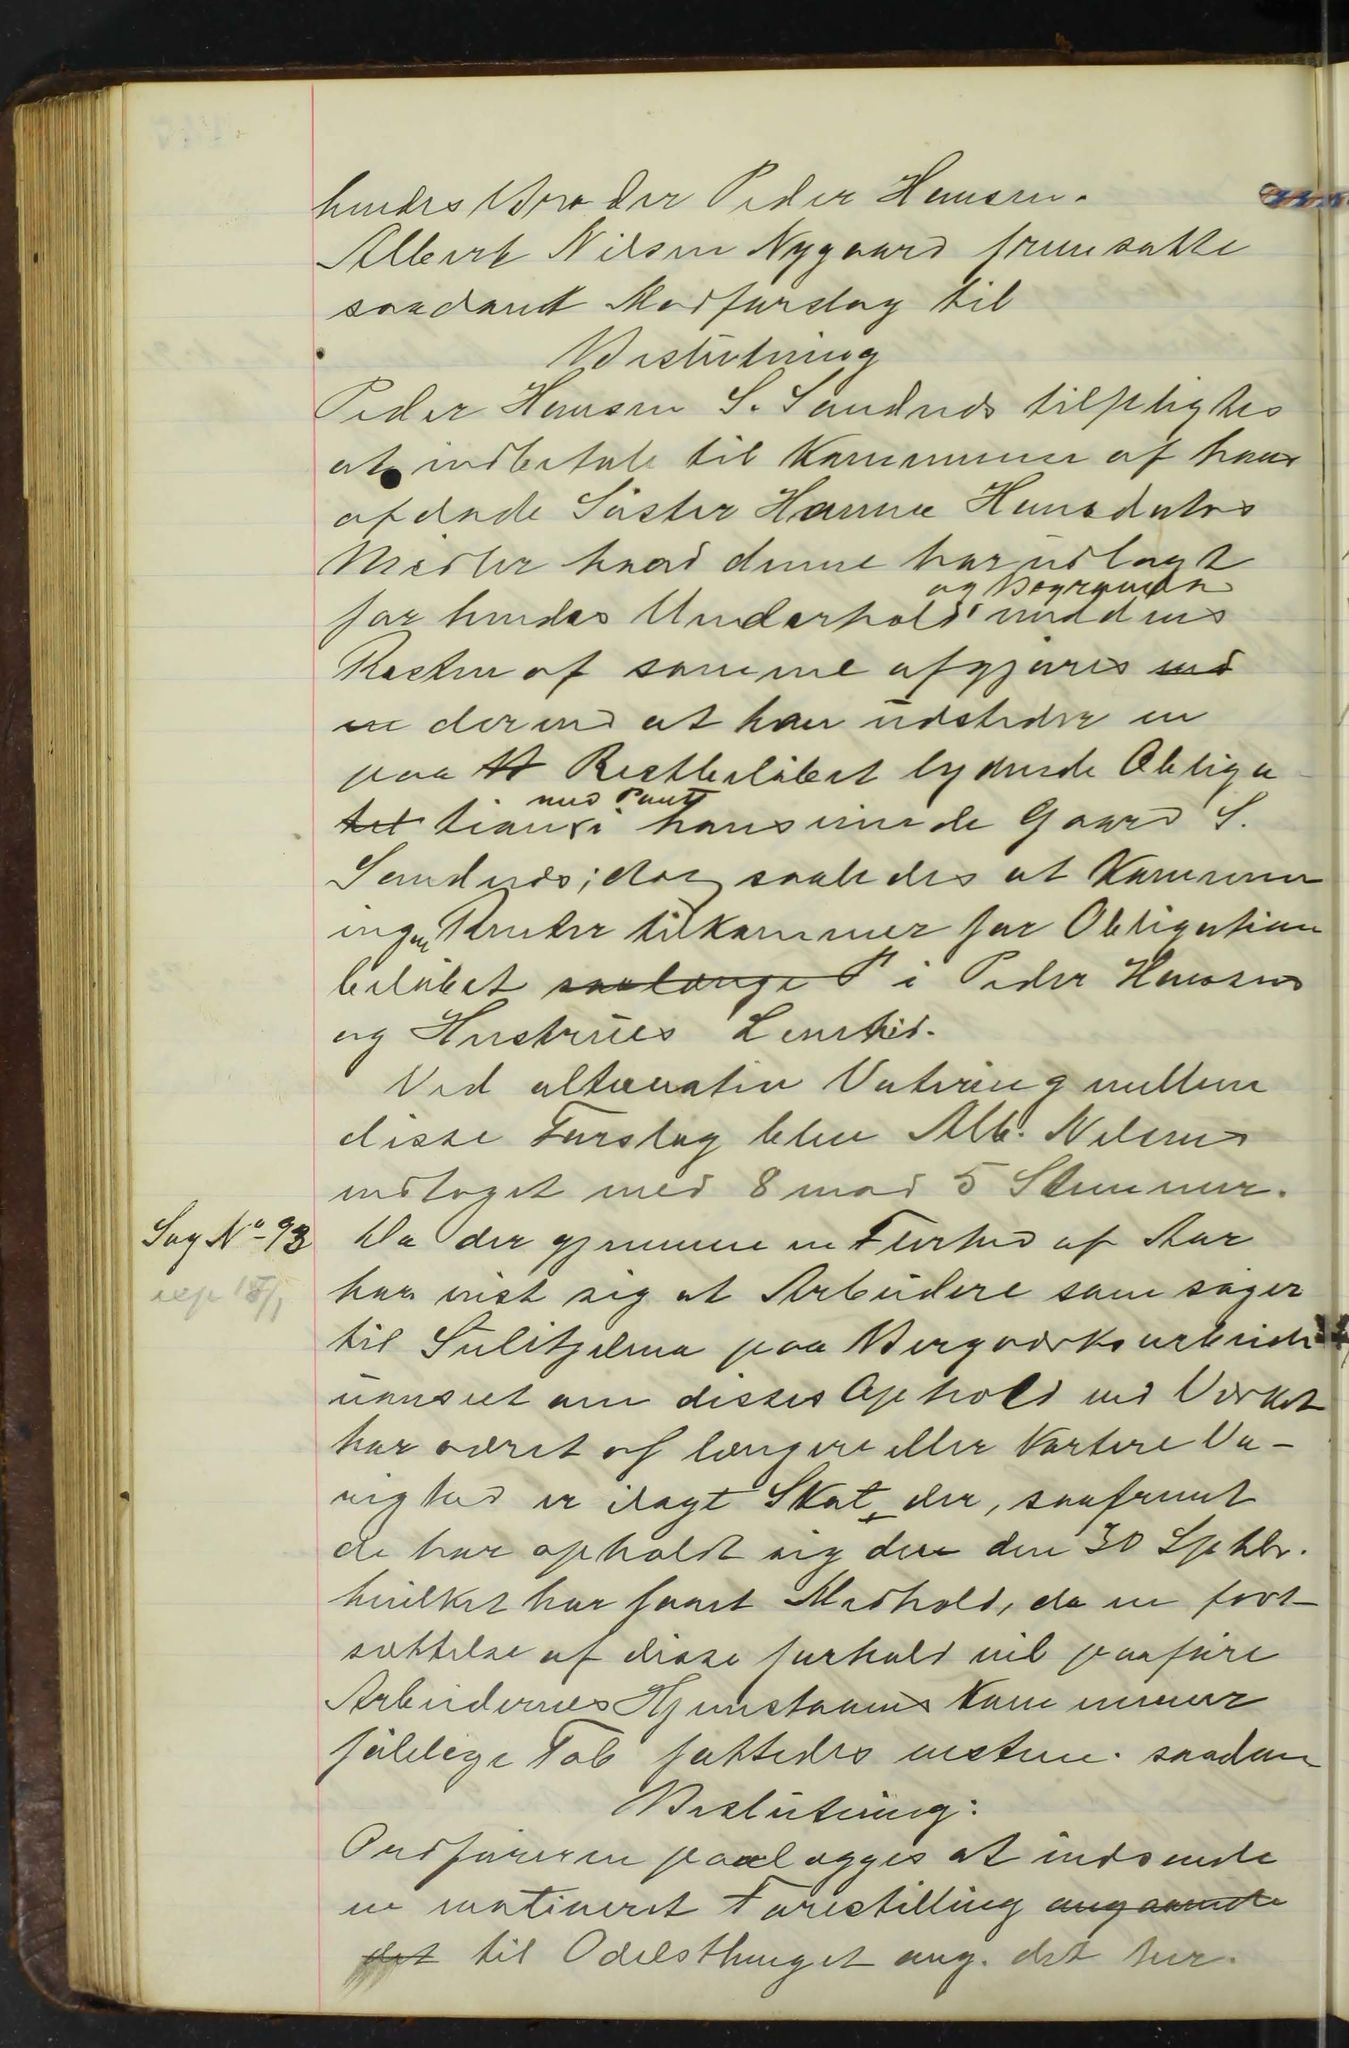 hendes Broder Peder Hansen.
Albert Nilsen Nygaard fremsatte
saadant Modforslag til
Beslutning
Peder Hansen S. Sandnes tilpligtes
at indbetale til Kommunen af hans
afdøde Søster Hanna Hansdatters
Midler hvad denne har udlagt
og Begravelse
for hendes Underhold medens
Resten af samme afgjøres ved
en derved at han udsteder en
paa Restbeløbet lydende Obliga
med Pant
tet tion i hans eiende Gaard S.
Sandnes; dog saaledes at Kommunen
ingen Renter tilkommer for Obligations
beløbet saalænge P i Peder Hansens
og Hustrues Levetid.
Ved alternativ Votering mellem
disse Forslag blev Alb. Nilsens
vedtaget med 8 mod 5 Stemmer.
Sag No 93 Da der gjennem en Flerhed af Aar
exp 18/1 har vist sig at Arbeidere som søger
til Sulitjelma paa Bergværksarbeide
uanseet om disses Ophold ved Værket
har været af længere eller kortere Va-
righed er ilagt Skat der, saafremt
de har opholdt sig der den 30 Septbr.
hvilket har faaet Medhold, da en fort-
sættelse af disse forhold vil paaføre
Arbeidernes Hjemstavns Kommuner
følelige Tab fattedes saadan
Beslutning:
Ordføreren paalægges at indsende
en motiveret Forestilling angaaende
det til Odelsthinget ang. det her.